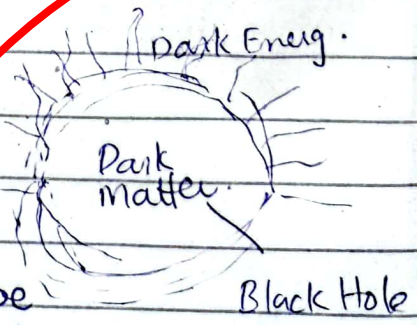 Dark Energ.
Dark
matter.
Black Hole